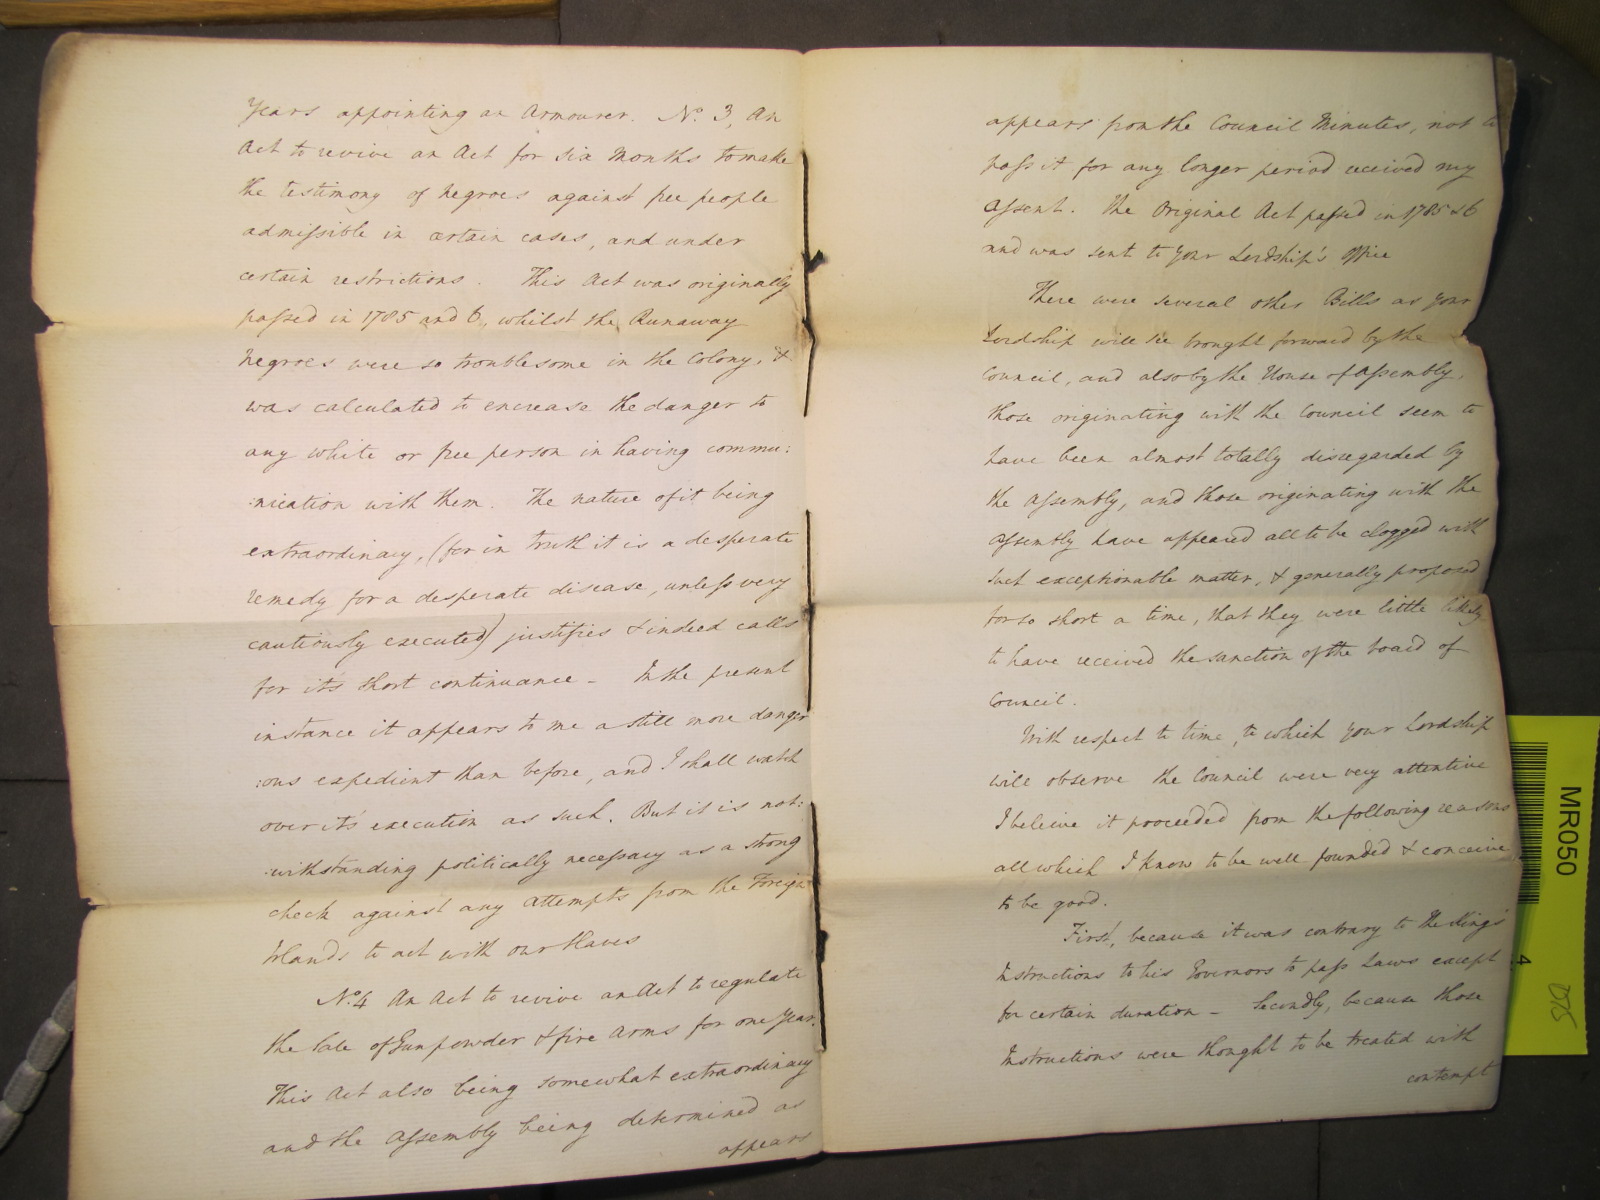 Years appointing an Armourer. No. 3, An
Act to revive an Act for six Months to make
the testimony of Negroes against free people
admissible in certain cases, and under
certain restrictions. This Act was originally
passed in 1785 and 6, whilst the Runaway
Negroes were so troublesome in the Colony, &
was calculated to encrease the danger to
any white or free person in having commu:
:nication with them. The nature of it being
extraordinary, (for in truth it is a desperate
remedy for a desperate disease, unless very
cautiously executed) justifies & indeed calls
for it's short continuance - In the present
instance it appears to me a still more danger
:ous expedient than before, and I shall watch
over it's execution as such. But it is not:
:withstanding politically necessary as a strong
check against any attempts from the Foreign
Islands to act with our Slaves
No. 4 An Act to revive an Act to regulate
the Sale of Gunpowder & fire Arms for one Year.
This Act also being somewhat extraordinary
and the Assembly being determined as
appears
appears from the Council Minutes, not to
pass it for any longer period received my
Assent. The Original Act passed in 1785 & 6
and was sent to Your Lordship's Office
There were several other Bills as Your
Lordship will see brought forward by the
Council, and also by the House of Assembly,
those originating with the Council seem to
have been almost totally disregarded by
the Assembly, and those originating with the
Assembly have appeared all to be clogged with
such exceptionable matter, & generally proposed
for so short a time, that they were little likely
to have received the sanction of the board of
Council.
With respect to time, to which Your Lordship
will observe the Council were very attentive
I beleive it proceeded from the following reasons
all which I know to be well founded & conceive
to be good.
First, because it was contrary to the King's
Instructions to his Governors to pass Laws except
for certain duration - Secondly, because those
Instructions were thought to be treated with
contempt
MR050
4